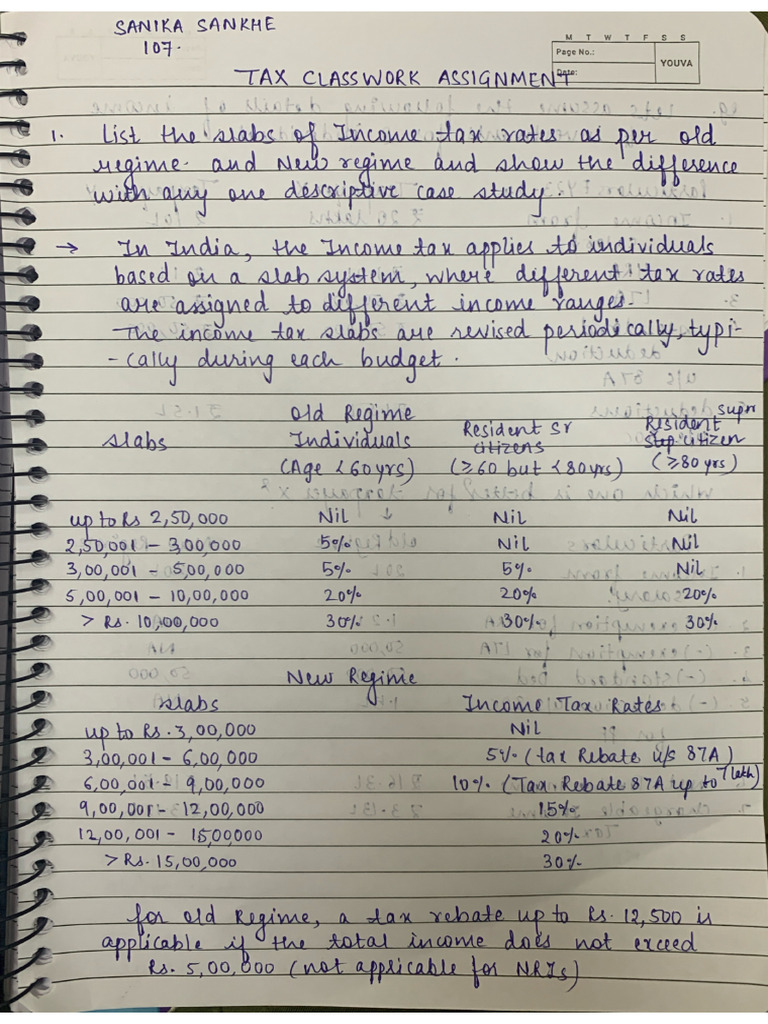 SANIKA SANKHE
107.
M T W T F S S
Page No.:
Date:
YOUVA
TAX CLASSWORK ASSIGNMENT
1. List the slabs of Income tax rates as per old
regime and New regime and show the difference
with any one descriptive case study.
→ In India, the Income tax applies to individuals
based on a slab system, where different tax rates
are assigned to different income ranges.
The income tax slabs are revised periodically, typi-
-cally during each budget.
Old Regime
Slabs Individuals (Age < 60 yrs) Resident Sr citizens (≥60 but <80 yrs) Resident supr citizen (≥80 yrs)
up to Rs 2,50,000 Nil Nil Nil
2,50,001 – 3,00,000 5% Nil Nil
3,00,001 – 5,00,000 5% 5% Nil
5,00,001 – 10,00,000 20% 20% 20%
> Rs. 10,00,000 30% 30% 30%
New Regime
Slabs Income Tax Rates
up to Rs. 3,00,000 Nil
3,00,001 – 6,00,000 5% (tax Rebate u/s 87A)
6,00,001 – 9,00,000 10% (Tax Rebate 87A up to 7 lakh)
9,00,001 – 12,00,000 15%
12,00,001 – 1500000 20%
> Rs. 15,00,000 30%
for old Regime, a tax rebate up to Rs. 12,500 is
applicable if the total income does not exceed
Rs. 5,00,000 (not applicable for NRIs)